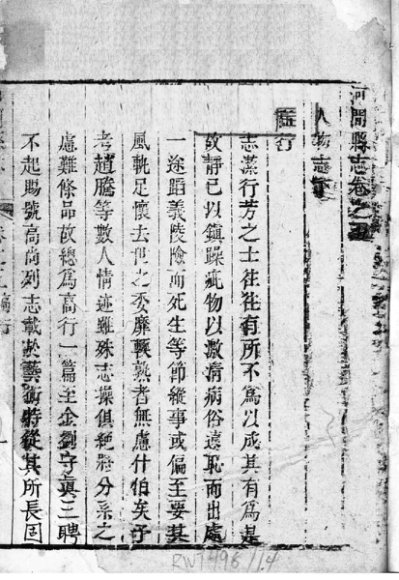 河間縣志卷之
人物志下
行
志潔行芳之士往往有所不為以成其有為是
故靜已以鎮躁疵物以激清病俗遠恥而出處
一途蹈義陵險而死生等節縱事或偏至要其
風軌足懷去世之委靡軟熟者無慮什伯矣予
考趙騰等數人情迹雖殊志操俱絕將分系之
慮難條品故總為高行一篇至金劉守真三聘
不起賜號高尚列志載於藝術特從其所長
RW1496/14